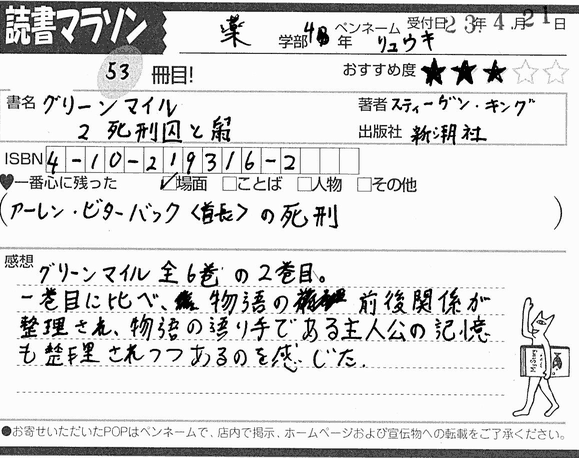 読書マラソン
薬 学部 4 年 ペンネーム リュウキ 受付日 23年 4.月 21日
53 冊目!
おすすめ度 ★★★☆☆
書名 グリーンマイル
2 死刑囚と鼠
著者 スティーヴン・キング
出版社 新潮社
ISBN 4-10-219316-2
♥一番心に残った ☑場面 □ことば □人物 □その他
(アーレン・ビターバック〈酋長〉の死刑)
感想
グリーンマイル全6巻の2巻目。
一巻目に比べ、物語の前後関係が
整理され、物語の語り手である主人公の記憶
も整理されつつあるのを感じた.
●お寄せいただいたPOPはペンネームで、店内で掲示、ホームページおよび宣伝物への転載をご了承ください。